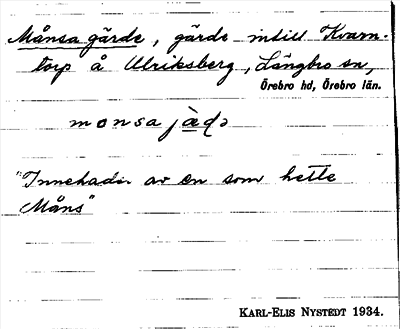 Månsa gärde, gärde intill Kvarn-
torp å Ulriksberg, Längbro sn,
Örebro hd, Örebro län.
monsa jæ̀ḍə
"Innehades av en som hette
Måns"
KARL-ELIS NYSTEDT 1934.